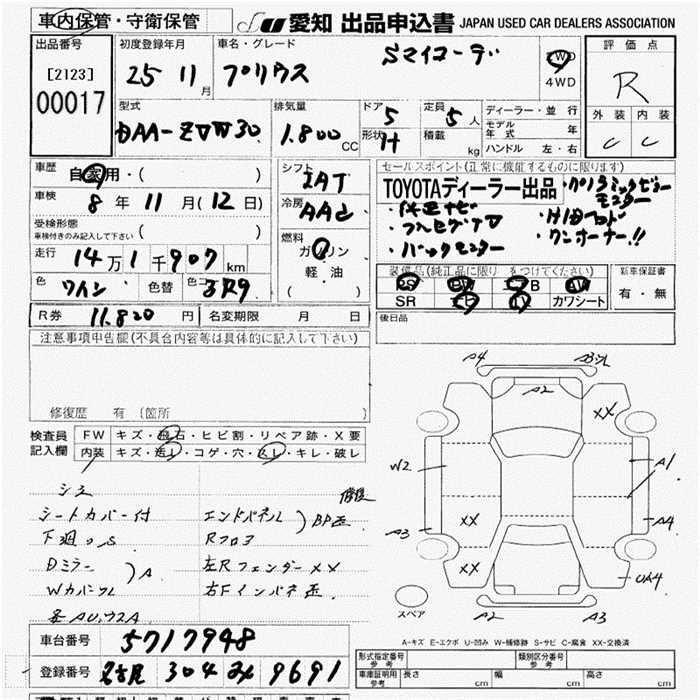 車内保管・守衛保管
JU 愛知 出品申込書 JAPAN USED CAR DEALERS ASSOCIATION
出品番号 初度登録年月 車名・グレード Sマイコーデ 2WD 4WD 評価点
[2123] 25 11月 プリウス R
00017
外装 内装
C C
型式 排気量 ドア 5 定員 5人 ディーラー・並行
DAA-ZVW30 1.800 CC 形状 H 積載 kg モデル年式 年
ハンドル 左・右
車歴 自家用・( ) シフト IAT セールスポイント(正常に機能するものに限ります)
車検 8年 11月 (12日) 冷房 AAC TOYOTAディーラー出品
・純正ナビ
・フルセグTV
・バックモニター
・ワンオーナー!!
受検形態
車検付きのみ記入して下さい ( )
燃料 ガソリン
軽・油
( )
走行 14万1千907km
色 ワイン 色替 色コ 3R9
装備品(純正品に限り をつけてください) 新車保証書
PS PW エアB AW
SR ナビ TV カワシート 有・無
R券 11.820円 名変期限 月 日
後日品
注意事項申告欄(不具合内容等は具体的に記入して下さい)
修復歴 有 (箇所 )
検査員記入欄 FW キズ・飛石・ヒビ割・リペア跡・X要
内装 キズ・汚レ・コゲ・穴・スレ・キレ・破レ
シミ
シートカバー付
下廻りS
Dミラー
WカバーL
)A
各AU,ウスA
修復
エンドパネル
Rフロア
)BP歪
左RフェンダーXX
右Fインパネ歪
A4 A3
A2
XX
W2 A1
XX
A3 A4
XX
UA4
A2 A3
スペア
A-キズ E-エクボ U-凹み W-補修跡 S-サビ C-腐食 XX-交換済
車台番号 5717948
登録番号 名古屋 304 9691
形式指定番号 参考 類別区分番号 参考
車庫証明用 参考 長さ cm 幅 cm 高さ cm